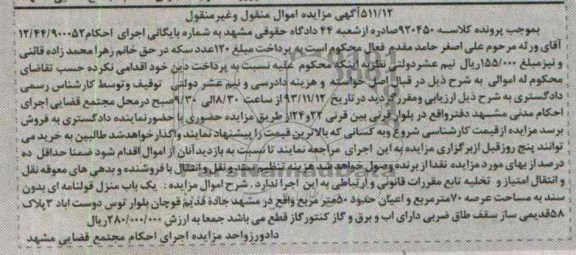 ۵۱۱/۱۲آگهی مزایده اموال منقول وغیرمنقول
بموجب پرونده کلاسه ۹۲۰۴۵۰صادره ازشعبه ۴۴ دادگاه حقوقی مشهد به شماره بایگانی اجرای احکام۱۲/۴۴/۹۰۰۰۵۲
آقای ورثه مرحوم علی اصغر حامد مقدم فعال محکوم است به پرداخت مبلغ ۱۲۰عدد سکه در حق خانم زهرا محمد زاده قائنی
و نیزمبلغ ۱۵۵/۰۰۰ریال نیم عشردولتی نظربه اینکه محکوم علیه نسبت به پرداخت دین خود اقدامی نکرده حسب تقاضای
محکوم له اموالی به شرح ذیل در قبال اصل خواسته و هزینه دادرسی و نیم عشر دولتی توقیف وتوسط کارشناس رسمی
دادگستری به شرح ذیل ارزیابی ومقرر گردید در تاریخ ۹۳/۱۱/۱۲ از ساعت ۸/۳۰الی ۹/۳۰صبح درمحل مجتمع قضایی اجرای
احکام مدنی مشهد دفترواقع در بلوار قرنی بین قرنی ۲۲و۲۴از طریق مزایده حضوری با حضورنماینده دادگستری به فروش
برسد مزایده از قیمت کارشناسی شروع وبه کسانی که بالاترین قیمت را پیشنهاد نمایند واگذارخواهدشد طالبین به خرید می
توانند پنج روزقبل ازبرگزاری مزایده به این اجرای مراجعه نمایند تا نسبت به بازدیدآنان از اموال اقدام شود ضمنا حداقل ده
درصد از بهای مورد مزایده نقدا از برنده وصول خواهد شد هزینه تنظیم سند و نقل وانتقال با فروشنده و بدهی های معوقه نقل
و انتقال امتیاز و تخلیه تابع مقررات قانونی و ارتباطی به این اجرا ندارد. شرح اموال مزایده : یک باب منزل قولنامه ای بدون
سند به مساحت عرصه ۷۰مترمربع و اعیان حدود ۵۰متر مربع واقع در مشهد جاده قدیم قوچان بلوار توس دوست اباد ۳پلاک
۵۸قدیمی ساز سقف طاق ضربی دارای اب و برق و گاز کنتورگاز قطع می باشد جمعا به ارزش ۲۸۰/۰۰۰/۰۰۰ریال
دادورزواحد مزایده اجرای احکام مجتمع قضایی مشهد